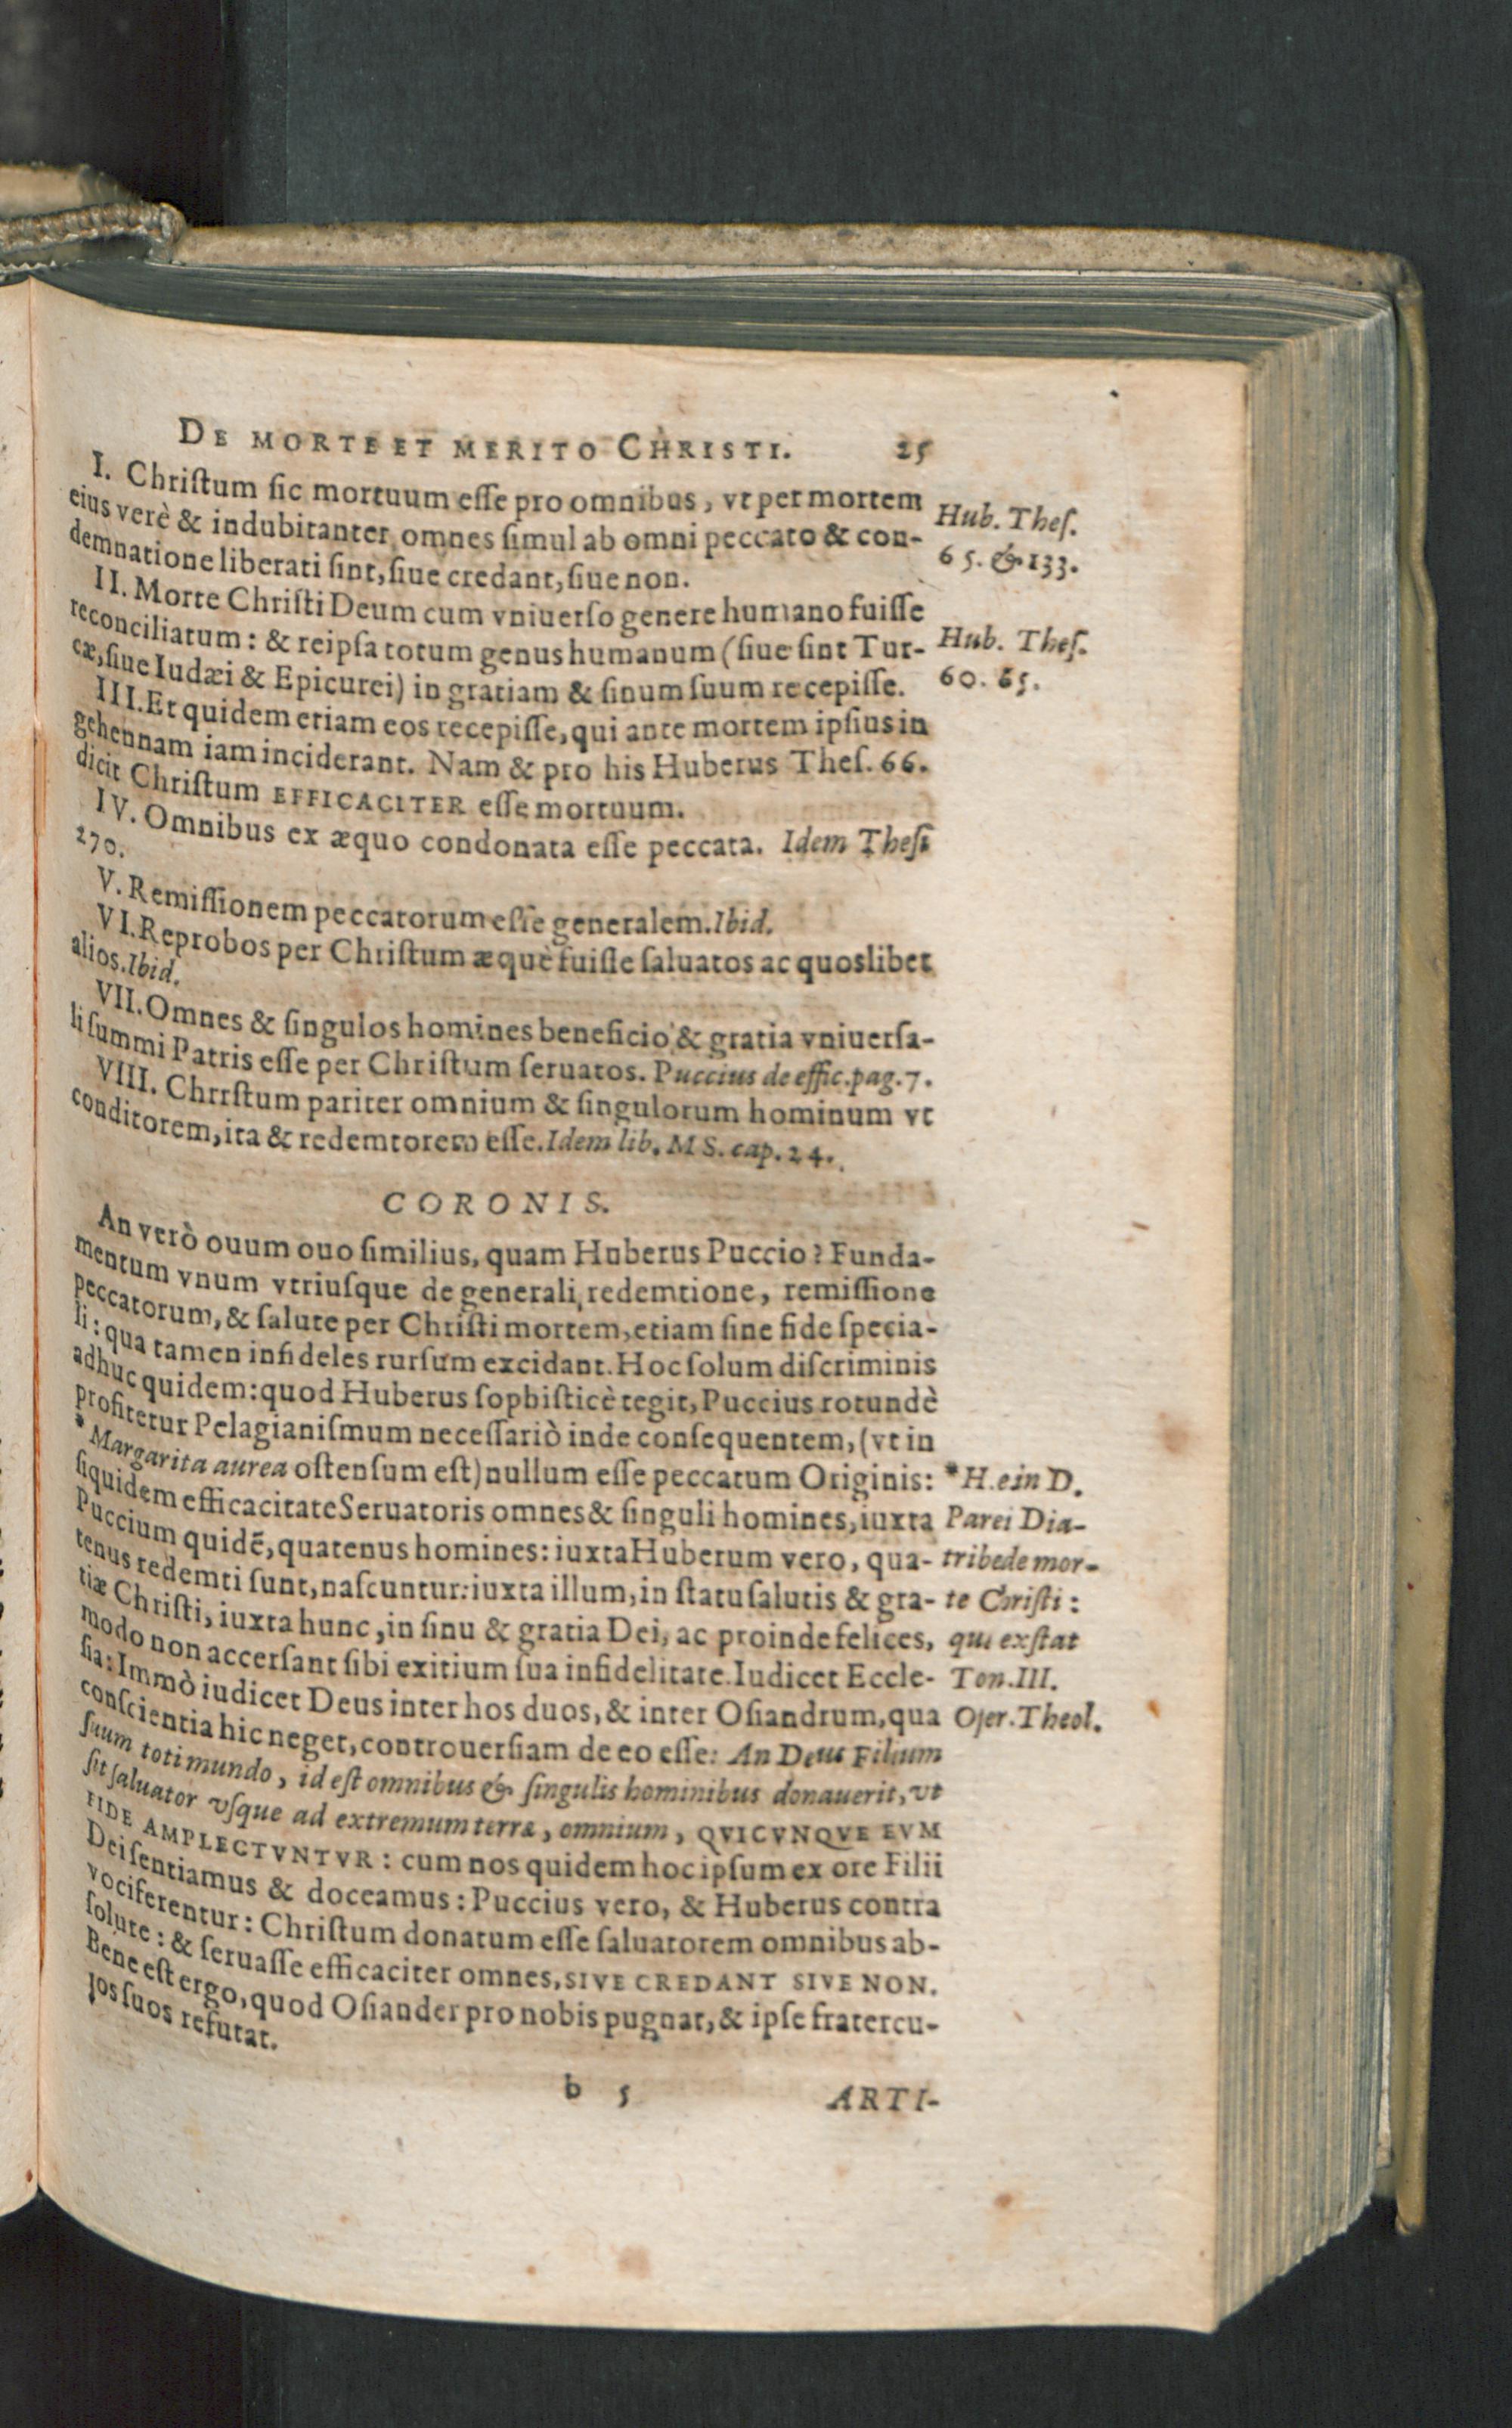 DE MORTE ET MERITO CHRISTI. 25
I. Chriſtum ſic mortuum eſſe pro omnibus, vt per mortem
eius verè & indubitanter omnes ſimul ab omni peccato & con-
demnatione liberati ſint, ſiue credant, ſiue non.
Hub. Theſ.
65. & 133.
II. Morte Chriſti Deum cum vniuerſo genere humano fuiſſe
reconciliatum: & reipſa totum genus humanum (ſiue ſint Tur-
cæ, ſiue Iudæi & Epicurei) in gratiam & ſinum ſuum recepiſſe.
Hub. Theſ.
60. 65.
III. Et quidem etiam eos recepiſſe, qui ante mortem ipſius in
gehennam iam inciderant. Nam & pro his Huberus Theſ. 66.
dicit Chriſtum EFFICACITER eſſe mortuum.
IV. Omnibus ex æquo condonata eſſe peccata. Idem Theſi
270.
V. Remiſſionem peccatorum eſſe generalem. Ibid.
VI. Reprobos per Chriſtum æquè fuiſſe ſaluatos ac quoslibet
alios. Ibid.
VII. Omnes & ſingulos homines beneficio & gratia vniuerſa-
li ſummi Patris eſſe per Chriſtum ſeruatos. Puccius de effic. pag. 7.
VIII. Chrrſtum pariter omnium & ſingulorum hominum vt
conditorem, ita & redemtorem eſſe. Idem lib. MS. cap. 24.
CORONIS.
An verò ouum ouo ſimilius, quam Huberus Puccio? Funda-
mentum vnum vtriuſque de generali redemtione, remiſſione
peccatorum, & ſalute per Chriſti mortem, etiam ſine fide ſpecia-
li: qua tamen infideles rurſum excidant. Hoc ſolum diſcriminis
adhuc quidem: quod Huberus ſophiſticè tegit, Puccius rotundè
profitetur Pelagianiſmum neceſſariò inde conſequentem, (vt in
* Margarita aurea oſtenſum eſt) nullum eſſe peccatum Originis:
ſiquidem efficacitate Seruatoris omnes & ſinguli homines, iuxta
Puccium quidē, quatenus homines: iuxta Huberum vero, qua-
tenus redemti ſunt, naſcuntur: iuxta illum, in ſtatu ſalutis & gra-
tiæ Chriſti, iuxta hunc, in ſinu & gratia Dei, ac proinde felices,
modo non accerſant ſibi exitium ſua infidelitate. Iudicet Eccle-
ſia: Immò iudicet Deus inter hos duos, & inter Oſiandrum, qua
* H. e in D.
Parei Dia-
tribe de mor-
te Chriſti:
qui exſtat
Ton. III.
Oper. Theol.
conſcientia hic neget, controuerſiam de eo eſſe: An Deus Filium
ſuum toti mundo, id eſt omnibus & ſingulis hominibus donauerit, vt
ſit ſaluator vſque ad extremum terræ, omnium, QVICVNQVE EVM
FIDE AMPLECTVNTVR: cum nos quidem hoc ipſum ex ore Filii
Dei ſentiamus & doceamus: Puccius vero, & Huberus contra
vociferentur: Chriſtum donatum eſſe ſaluatorem omnibus ab-
ſolute: & ſeruaſſe efficaciter omnes, SIVE CREDANT SIVE NON.
Bene eſt ergo, quod Oſiander pro nobis pugnat, & ipſe fratercu-
los ſuos refutat.
b 5 ARTI-